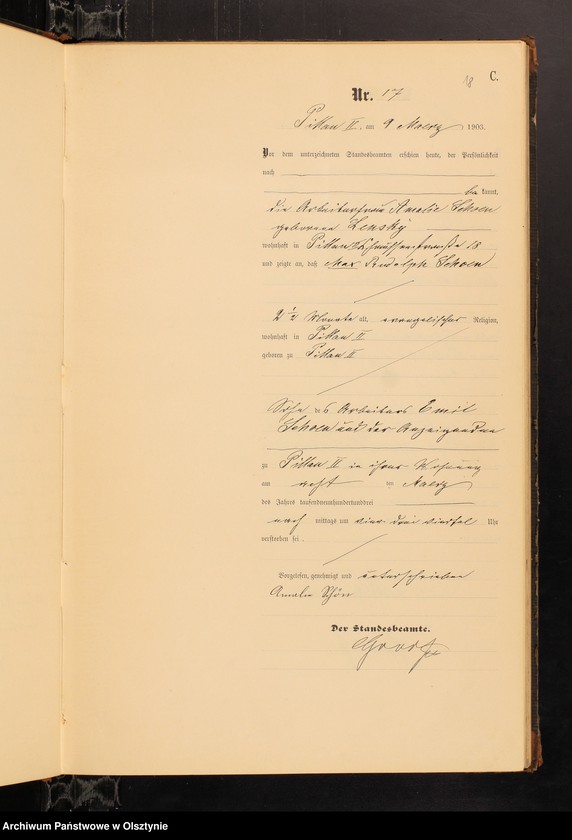 18
C.
Nr. 17
Pillau II. am 9 Maerz 1903.
Vor dem unterzeichneten Standesbeamten erschien heute, der Persönlichkeit
nach
be kannt,
die Arbeiterfrau Amalie Schoen
geborene Lensky
wohnhaft in Pillau II 18
und zeigte an, daß Max Rudolph Schoen
2 1/2 Monate alt, evangelischer Religion,
wohnhaft in Pillau II
geboren zu Pillau II
Sohn des Arbeiters Emil
Schoen und der Anzeigenden
zu Pillau II in ihrer Wohnung
am acht ten Maerz
des Jahres tausendneunhundertunddrei
nach mittags um vier drei viertel Uhr
verstorben sei.
Vorgelesen, genehmigt und unterschrieben
Amalie Schön
Der Standesbeamte.
Archiwum Państwowe w Olsztynie